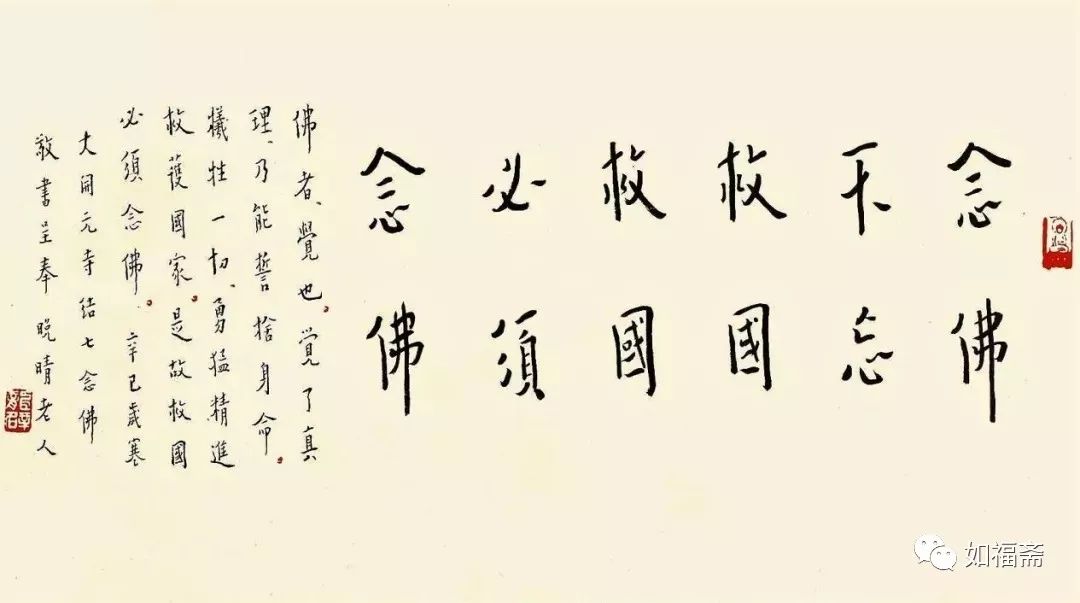 念佛
不忘
救國
救國
必須
念佛
佛者、覺也。覺了真
理、乃能誓捨身命。
犧牲一切、勇猛精進
救護國家。是故救國
必須念佛。辛巳歲寒
大開元寺結七念佛
敬書呈奉 晚晴老人
如福斋